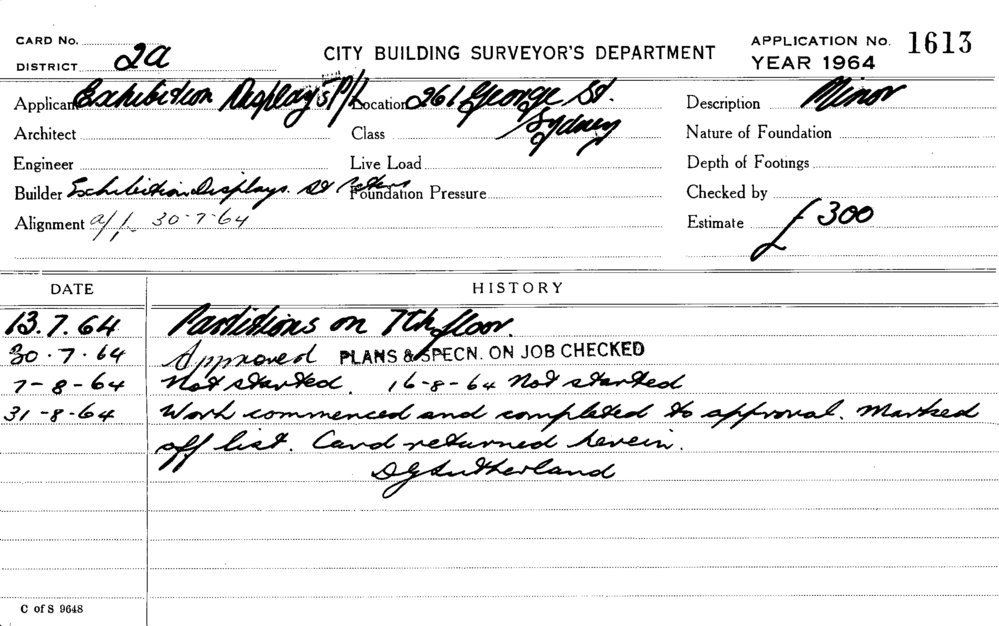 CARD No.
DISTRICT 2a
CITY BUILDING SURVEYOR'S DEPARTMENT
APPLICATION No. 1613
YEAR 1964
Applicant Exhibition Displays P/L
Location 261 George St.
Sydney
Description Minor
Architect
Class
Nature of Foundation
Engineer
Live Load
Depth of Footings
Builder Exhibition Displays. St Peters
Foundation Pressure
Checked by
Alignment a/l 30-7-64
Estimate £300
DATE HISTORY
13.7.64 Partitions on 7th floor.
30.7.64 Approved PLANS & SPECN. ON JOB CHECKED
7-8-64 Not started. 16-8-64 Not started
31-8-64 Work commenced and completed to approval. Marked
off list. Card returned herein.
DGSutherland
C of S 9648